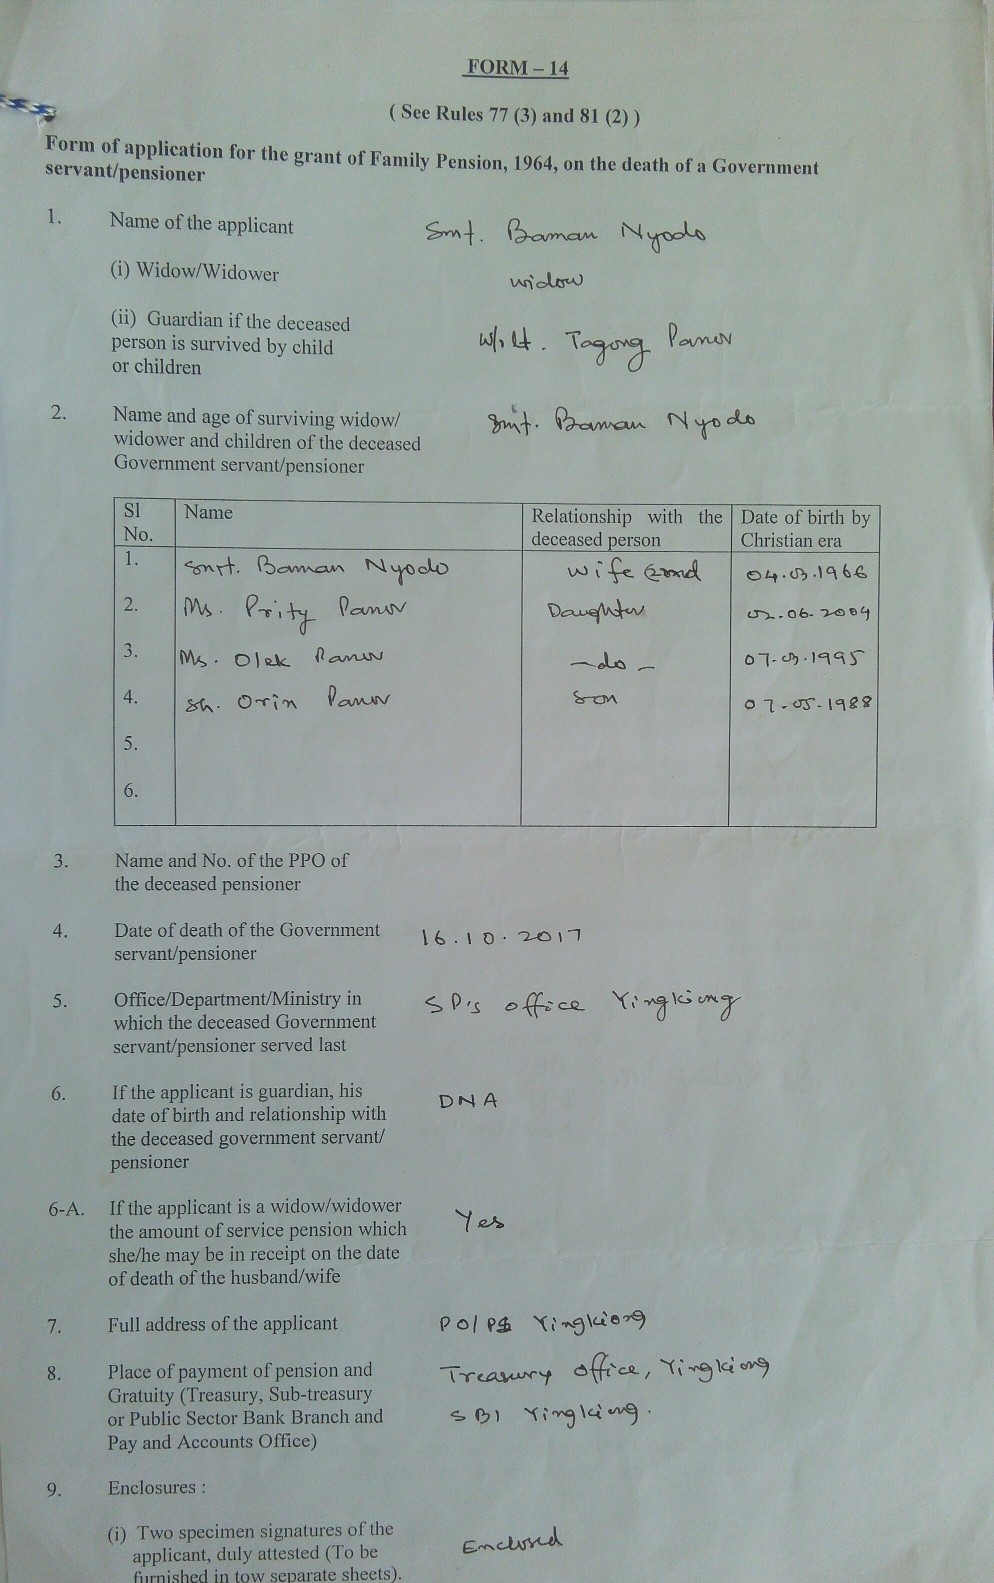 FORM – 14
( See Rules 77 (3) and 81 (2) )
Form of application for the grant of Family Pension, 1964, on the death of a Government
servant/pensioner
1. Name of the applicant Smt. Baman Nyodo
(i) Widow/Widower widow
(ii) Guardian if the deceased
person is survived by child W/o Lt. Tagong Panor
or children
2. Name and age of surviving widow/ Smt. Baman Nyodo
widower and children of the deceased
Government servant/pensioner
Sl Name Relationship with the Date of birth by
No. deceased person Christian era
1. Smt. Baman Nyodo wife 04.03.1966
2. Ms. Prity Panor Daughter 02.06.2004
3. Ms. Olek Panor – do – 07.03.1995
4. Sh. Orin Panor Son 07.05.1988
5.
6.
3. Name and No. of the PPO of
the deceased pensioner
4. Date of death of the Government 16.10.2017
servant/pensioner
5. Office/Department/Ministry in SP's office Yingkiong
which the deceased Government
servant/pensioner served last
6. If the applicant is guardian, his DNA
date of birth and relationship with
the deceased government servant/
pensioner
6-A. If the applicant is a widow/widower Yes
the amount of service pension which
she/he may be in receipt on the date
of death of the husband/wife
7. Full address of the applicant PO/PS Yingkiong
8. Place of payment of pension and Treasury office, Yingkiong
Gratuity (Treasury, Sub-treasury
or Public Sector Bank Branch and SBI Yingkiong.
Pay and Accounts Office)
9. Enclosures :
(i) Two specimen signatures of the Enclosed
applicant, duly attested (To be
furnished in tow separate sheets).